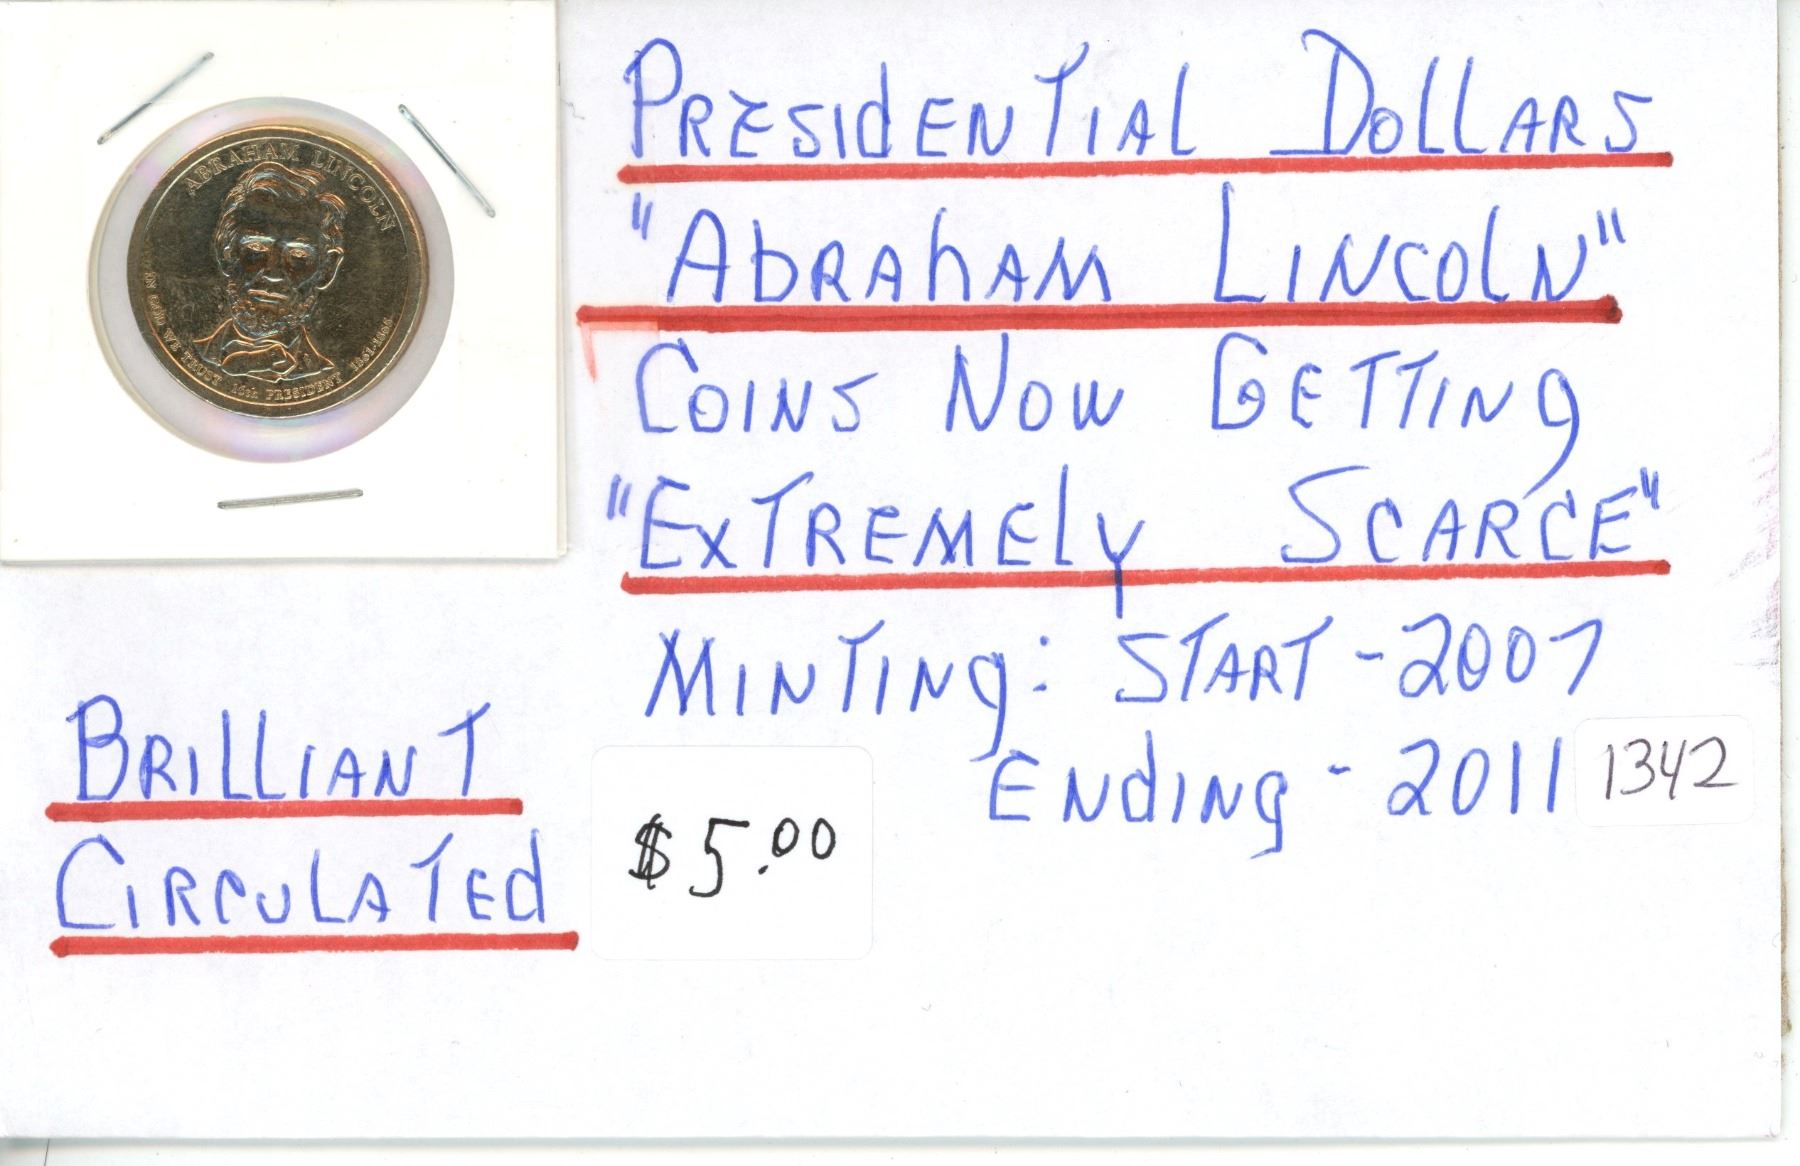 ABRAHAM LINCOLN
IN GOD WE TRUST 16th PRESIDENT 1861-1865
PRESIDENTIAL DOLLARS
"AbRAhAM LINCOLN"
COINS NOW GETTING
"EXTREMELY SCARCE"
MINTING: START - 2007
ENdING - 2011
1342
BRILLIANT
CIRCULATEd
$5.00